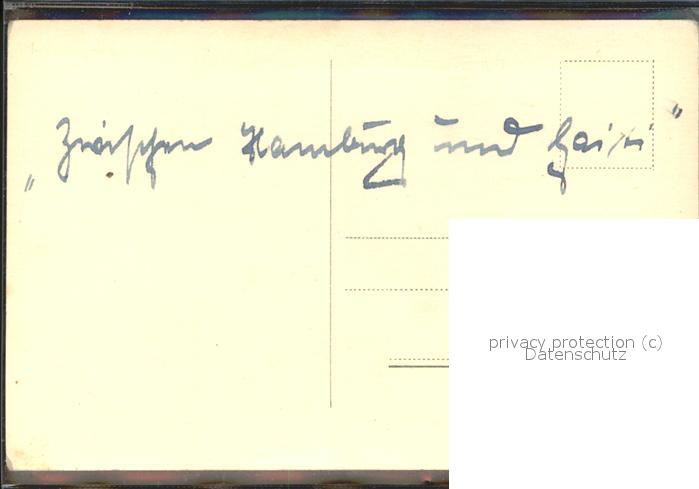 „Zwischen Hamburg und Haiti"
privacy protection (c)
Datenschutz